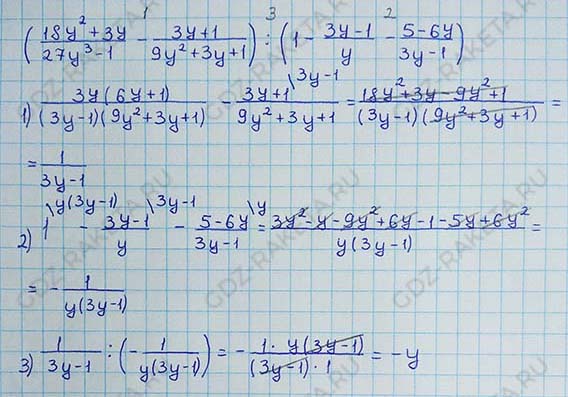 1 3 2
(18y²+3y / 27y³-1 - 3y+1 / 9y²+3y+1) : (1 - 3y-1 / y - 5-6y / 3y-1)
1) 3y(6y+1) / (3y-1)(9y²+3y+1) - 3y+1 \3y-1 / 9y²+3y+1 = 18y²+3y-9y²+1 / (3y-1)(9y²+3y+1) =
= 1 / 3y-1
2) 1 \y(3y-1) - 3y-1 \3y-1 / y - 5-6y \y / 3y-1 = 3y²-y-9y²+6y-1-5y+6y² / y(3y-1) =
= - 1 / y(3y-1)
3) 1 / 3y-1 : (- 1 / y(3y-1)) = - 1·y(3y-1) / (3y-1)·1 = -y
GDZ-RAKETA.RU